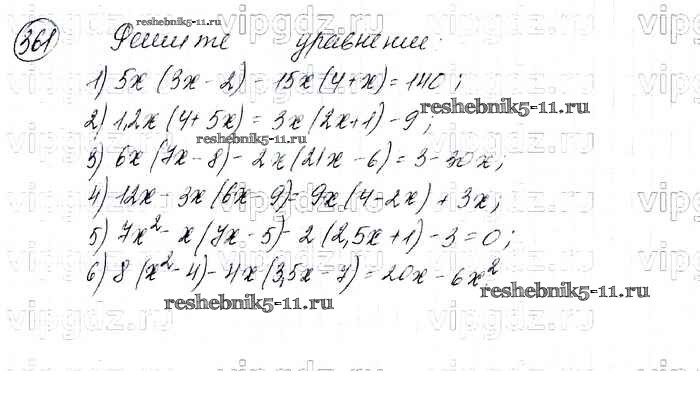 361 Решите уравнение:
1) 5x (3x - 2) - 15x (4 + x) = 140;
2) 1,2x (4 + 5x) = 3x (2x + 1) - 9;
3) 6x (7x - 8) - 2x (21x - 6) = 3 - 30x;
4) 12x - 3x (6x - 9) = 9x (4 - 2x) + 3x;
5) 7x² - x (7x - 5) - 2 (2,5x + 1) - 3 = 0;
6) 8 (x² - 4) - 4x (3,5x - 7) = 20x - 6x²
reshebnik5-11.ru
reshebnik5-11.ru
reshebnik5-11.ru
reshebnik5-11.ru
vipgdz.ru